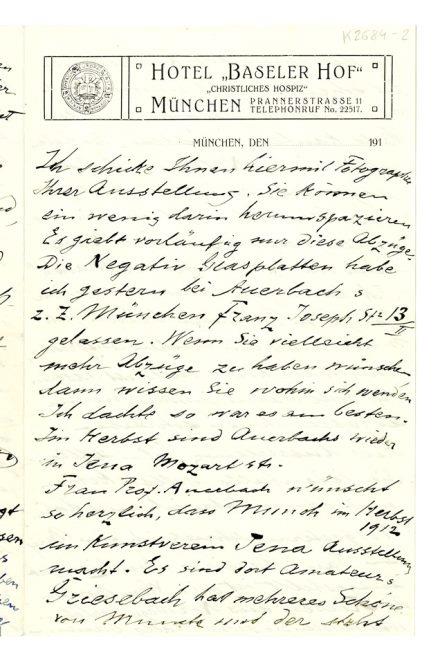 K2684-2
HOTEL „BASELER HOF“
„CHRISTLICHES HOSPIZ“
MÜNCHEN PRANNERSTRASSE 11
TELEPHONRUF No. 22517.
MÜNCHEN, DEN 191
Ich schicke Ihnen hiermit Fotographien
Ihrer Ausstellung. Sie können
ein wenig darin herumspazieren
Es giebt vorläufig nur diese Abzüge.
Die Negativ Glasplatten habe
ich gestern bei Auerbach s
z. Z. München Franz Joseph Str 13
II
gelassen. Wenn Sie vielleicht
mehr Abzüge zu haben wünschen
dann wissen Sie wohin sich wenden
Ich dachte so war es am besten.
Im Herbst sind Auerbachs wieder
in Jena Mozart str.
Frau Prof. Auerbach wünscht
so herzlich, dass Munch im Herbst
1912
im Kunstverein Jena Ausstellung
macht. Es sind dort Amateur's
Griesebach hat mehreres Schöne
von Munch und der steht